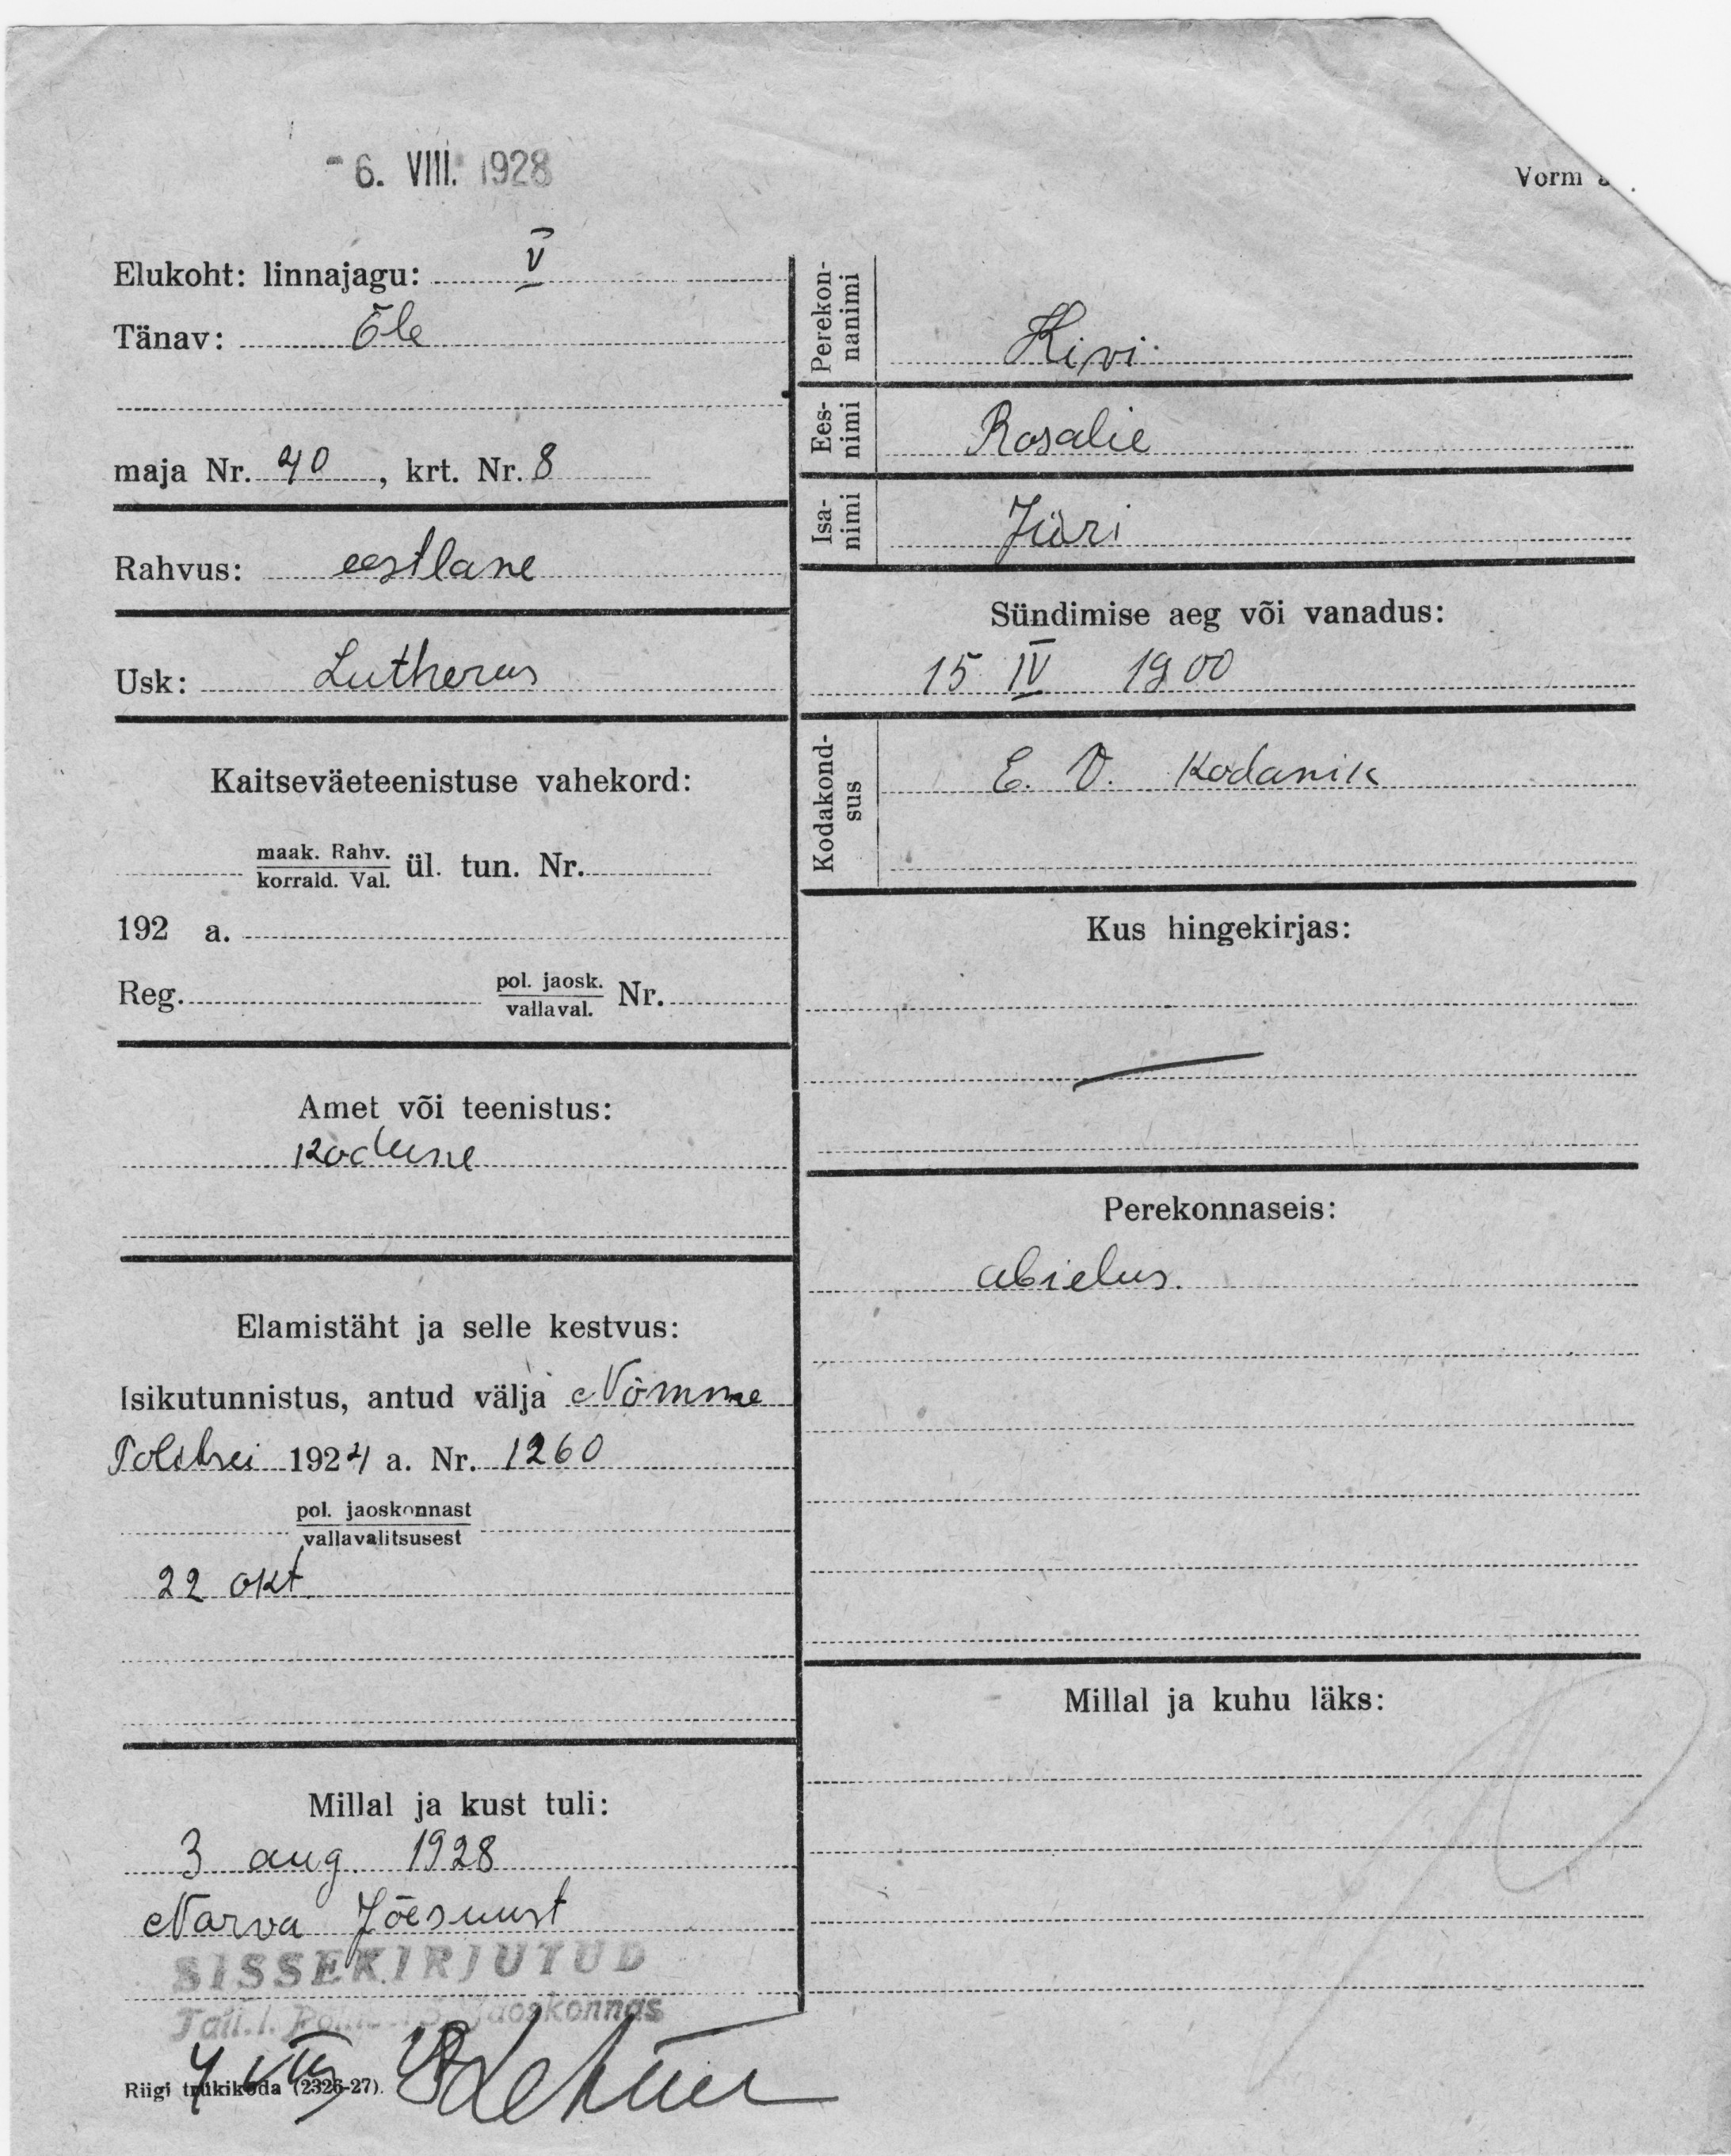 - 6. VIII. 1928
Vorm
Elukoht: linnajagu: V
Tänav: Õle
maja Nr. 40, krt. Nr. 8
Rahvus: eestlane
Usk: Lutherus
Kaitseväeteenistuse vahekord:
maak. Rahv.
korrald. Val. ül. tun. Nr.
192 a.
Reg. pol. jaosk.
vallaval. Nr.
Amet või teenistus:
kodune
Elamistäht ja selle kestvus:
Isikutunnistus, antud välja Nõmme
Politsei 1924 a. Nr. 1260
pol. jaoskonnast
vallavalitsusest
22 okt.
Millal ja kust tuli:
3 aug. 1928
Narva Jõesuust
SISSEKIRJUTUD
Jaoskonnas
Riigi trükikoda (2326-27).
Perekon-
nanimi
Kivi
Ees-
nimi
Rosalie
Isa-
nimi
Jüri
Sündimise aeg või vanadus:
15 IV 1900
Kodakond-
sus
E. V. Kodanik
Kus hingekirjas:
Perekonnaseis:
abielus.
Millal ja kuhu läks: